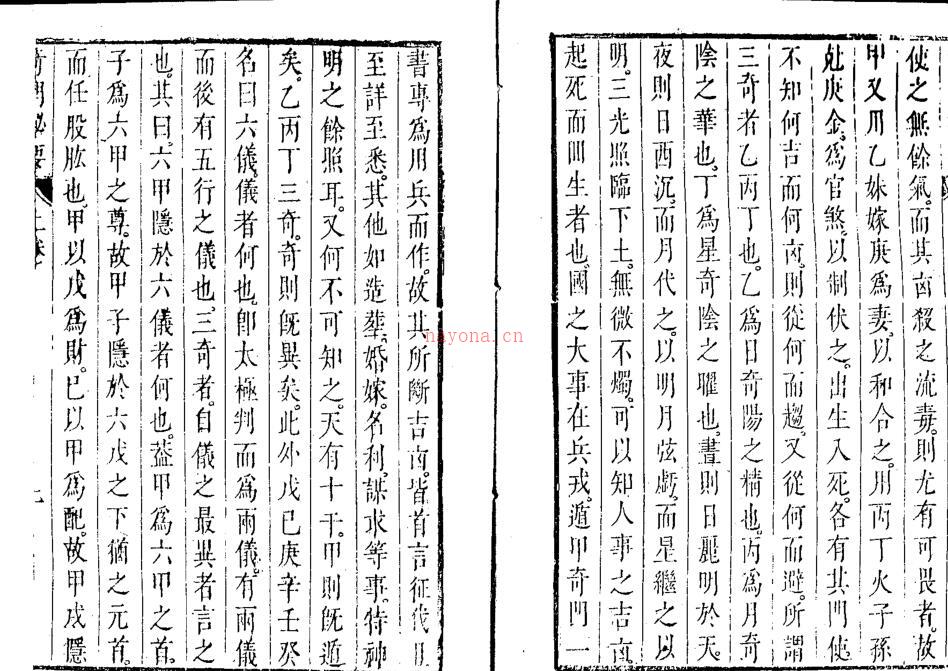 使之無餘氣。而其㐫殺之流毒。則尤有可畏者。故
甲又用乙妹嫁庚爲妻。以和合之。用丙丁火子孫
尅庚金。爲官煞。以制伏之。出生入死。各有其門。使
不知何吉而何㐫。則從何而趨。又從何而避。所謂
三奇者。乙丙丁也。乙爲日奇陽之精也。丙爲月奇
陰之華也。丁爲星奇陰之曜也。晝則日麗明於天。
夜則日西沉。而月代之。以明月弦虧。而星繼之以
明。三光照臨下土。無微不燭。可以知人事之吉㐫
起死而回生者也。國之大事在兵戎。遁甲奇門一
書專爲用兵而作。故其所斷吉㐫。皆首言征伐
至詳至悉。其他如造葬。婚嫁。名利。謀求等事。特神
明之餘照耳。又何不可知之。天有十干。甲則旣遁
矣。乙丙丁三奇。奇則旣異矣。此外戊己庚辛壬癸
名曰六儀。儀者何也。卽太極判而爲兩儀。有兩儀
而後有五行之儀也。三奇者。自儀之最異者言之
也。其曰。六甲隱於六儀者何也。蓋甲爲六甲之首。
子爲六甲之尊。故甲子隱於六戊之下猶之元首。
而任股肱也。甲以戊爲財。己以甲爲配。故甲戌隱
奇門秘要
上卷
nayona.cn